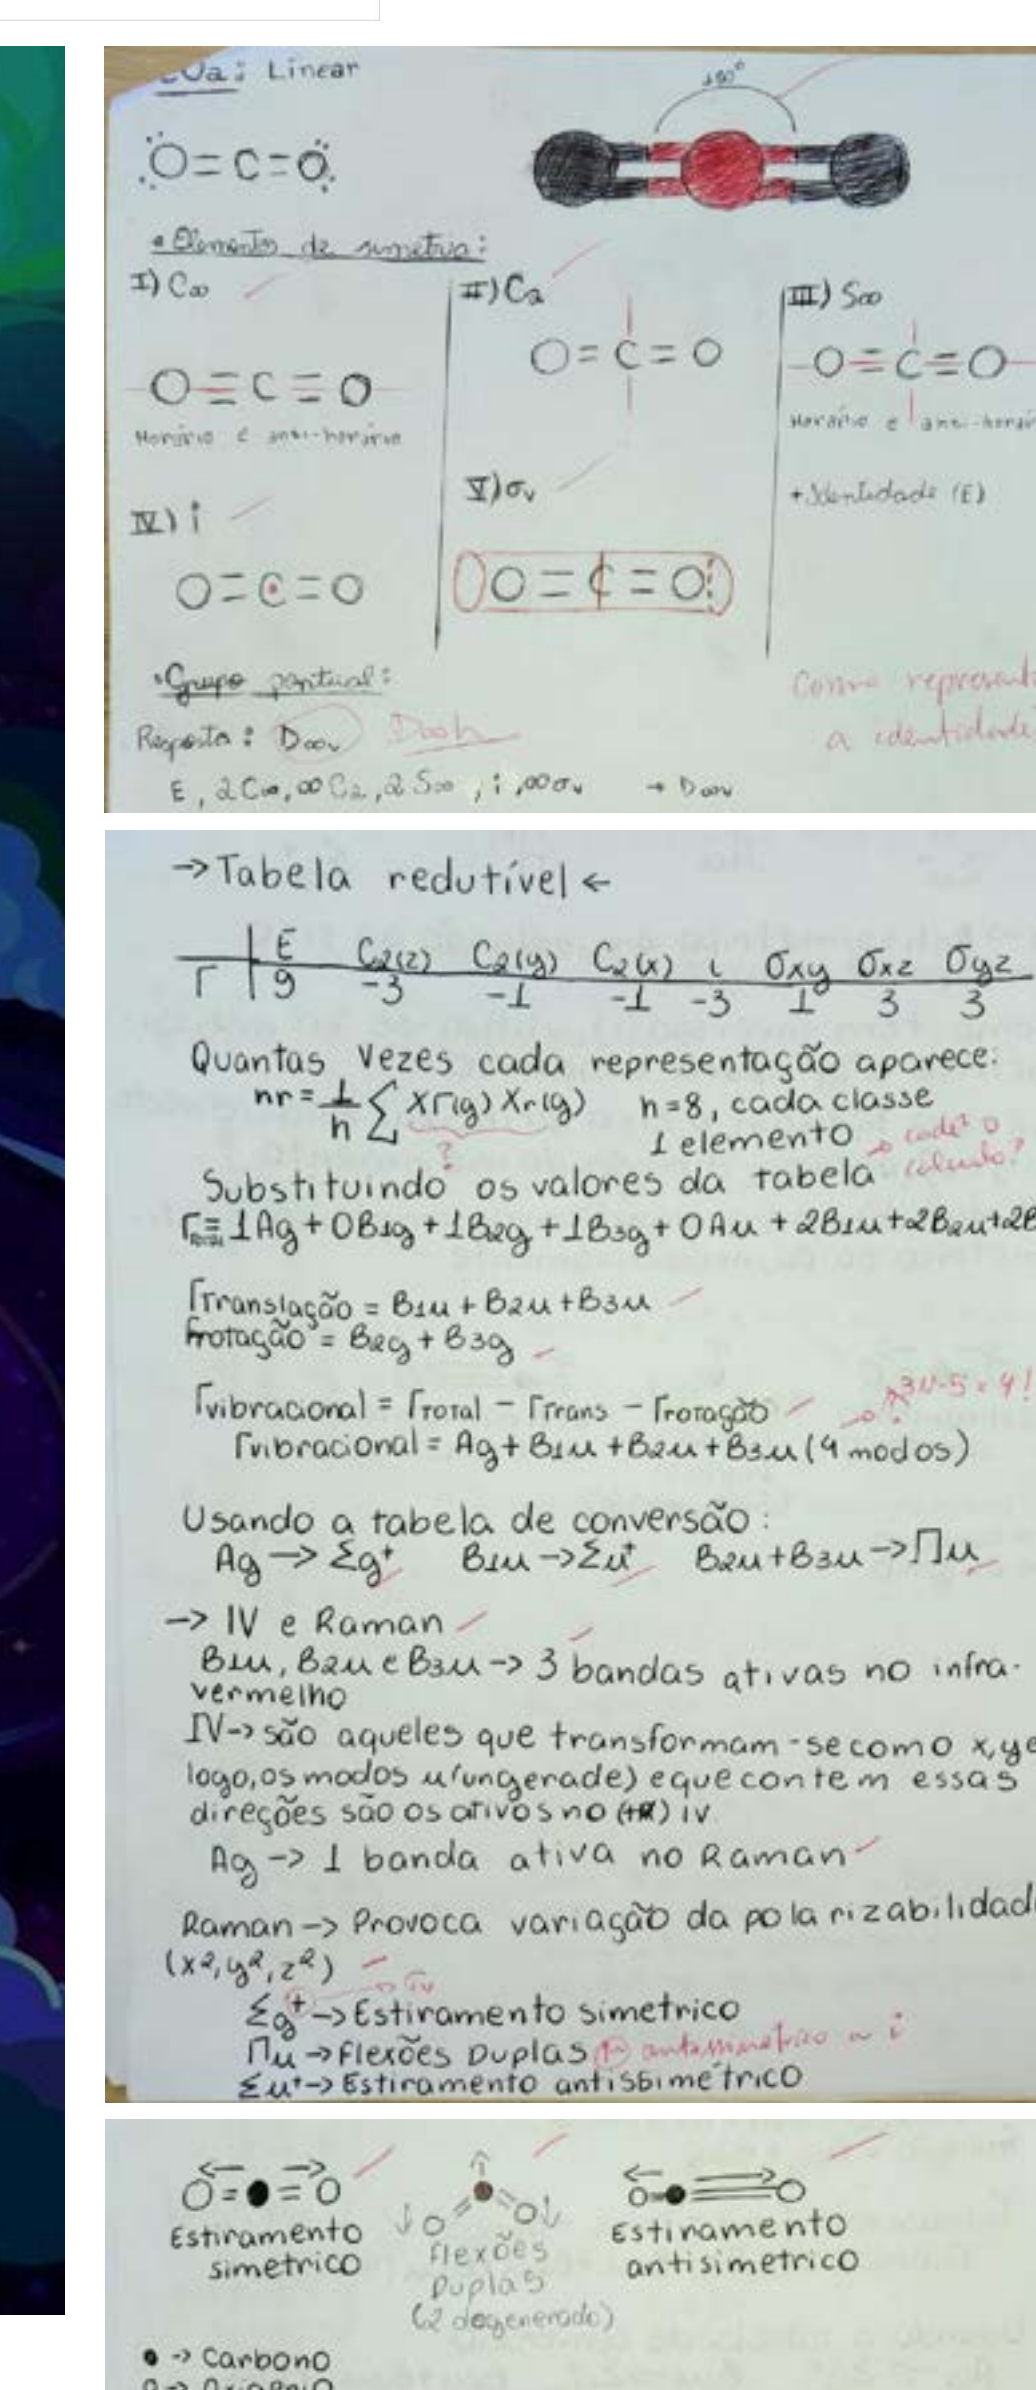 : Linear
180°
O=C=O
• Elementos de simetria:
I) C∞
II) C2
III) S∞
O=C=O
O=C=O
O=C=O
Horário e anti-horário
Horário e anti-horár
IV) i
V) σv
+ Identidade (E)
O=C=O
O=C=O
• Grupo pontual:
Como represent
a identidade
Resposta: D∞v D∞h
E, 2C∞, ∞C2, 2S∞, i, ∞σv → D∞v
→ Tabela redutível ←
E C2(z) C2(y) C2(x) i σxy σxz σyz
Γ 9 -3 -1 -1 -3 1 3 3
Quantas vezes cada representação aparece:
nr = 1/h Σ XΓ(g) Xr(g) h=8, cada classe
1 elemento
cadê o
cálculo?
?
Substituindo os valores da tabela
1Ag + 0B1g + 1B2g + 1B3g + 0Au + 2B1u + 2B2u + 2B
ΓTranslação = B1u + B2u + B3u
Γrotação = B2g + B3g
Γvibracional = ΓTOTAL - ΓTrans - Γrotação
3N-5 = 4!
Γvibracional = Ag + B1u + B2u + B3u (4 modos)
Usando a tabela de conversão:
Ag → Σg+ B1u → Σu+ B2u+B3u → Πu
→ IV e Raman
B1u, B2u e B3u → 3 bandas ativas no infra-
vermelho
IV → são aqueles que transformam-se como x, y e
logo, os modos u (ungerade) e que contem essas
direções são os ativos no IV
Ag → 1 banda ativa no Raman
Raman → Provoca variação da polarizabilidad
(x², y², z²)
σv
Σg+ → Estiramento simetrico
Πu → Flexões Duplas antissimétrico a i
Σu+ → Estiramento antissimétrico
O=●=O
O O
O=●=O
Estiramento
simetrico
Flexões
Duplas
(2 degenerado)
Estiramento
antisimetrico
● → Carbono
O → Oxigênio